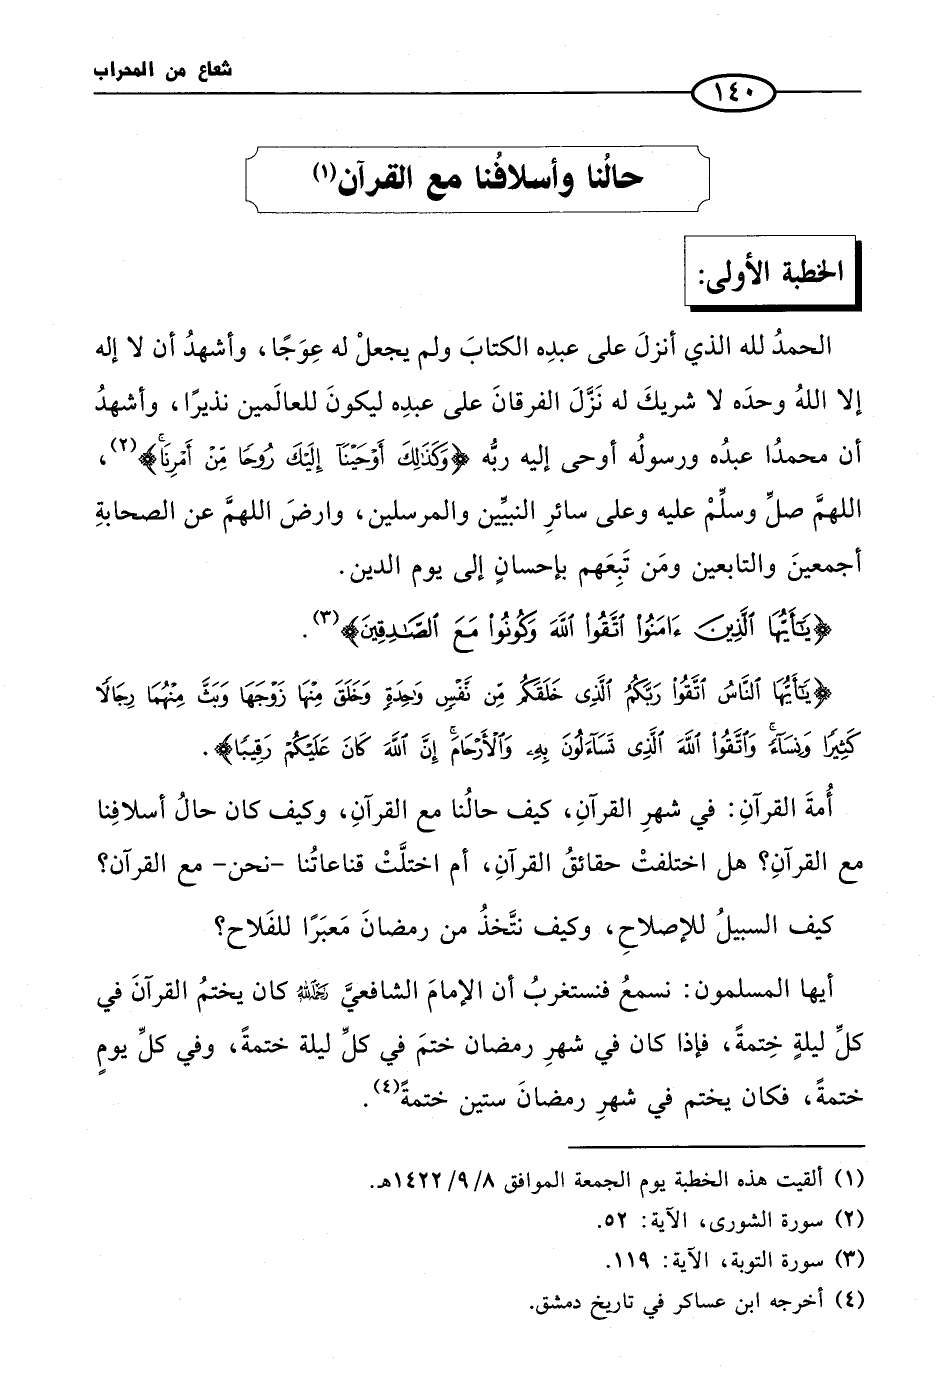 شعاع من المحراب
١٤٠
حالُنا وأسلافُنا مع القرآن(١)
الخطبة الأولى:
الحمدُ لله الذي أنزلَ على عبدِه الكتابَ ولم يجعلْ له عِوَجًا، وأشهدُ أن لا إله
إلا اللهُ وحدَه لا شريكَ له نَزَّلَ الفرقانَ على عبدِه ليكونَ للعالَمين نذيرًا، وأشهدُ
أن محمدًا عبدُه ورسولُه أوحى إليه ربُّه ﴿وَكَذَٰلِكَ أَوْحَيْنَآ إِلَيْكَ رُوحًا مِّنْ أَمْرِنَا﴾(٢)،
اللهمَّ صلِّ وسلِّمْ عليه وعلى سائرِ النبيِّين والمرسلين، وارضَ اللهمَّ عن الصحابةِ
أجمعينَ والتابعين ومَن تَبِعَهم بإحسانٍ إلى يوم الدين.
﴿يَٰٓأَيُّهَا ٱلَّذِينَ ءَامَنُوا۟ ٱتَّقُوا۟ ٱللَّهَ وَكُونُوا۟ مَعَ ٱلصَّٰدِقِينَ﴾(٣).
﴿يَٰٓأَيُّهَا ٱلنَّاسُ ٱتَّقُوا۟ رَبَّكُمُ ٱلَّذِى خَلَقَكُم مِّن نَّفْسٍ وَٰحِدَةٍ وَخَلَقَ مِنْهَا زَوْجَهَا وَبَثَّ مِنْهُمَا رِجَالًا
كَثِيرًا وَنِسَآءً ۚ وَٱتَّقُوا۟ ٱللَّهَ ٱلَّذِى تَسَآءَلُونَ بِهِۦ وَٱلْأَرْحَامَ ۚ إِنَّ ٱللَّهَ كَانَ عَلَيْكُمْ رَقِيبًا﴾.
أُمةَ القرآنِ: في شهرِ القرآنِ، كيف حالُنا مع القرآنِ، وكيف كان حالُ أسلافِنا
مع القرآنِ؟ هل اختلفتْ حقائقُ القرآنِ، أم اختلَّتْ قناعاتُنا -نحن- مع القرآن؟
كيف السبيلُ للإصلاحِ، وكيف نتَّخذُ من رمضانَ مَعبَرًا للفَلاح؟
أيها المسلمون: نسمعُ فنستغربُ أن الإمامَ الشافعيَّ رَحِمَهُ اللهُ كان يختمُ القرآنَ في
كلِّ ليلةٍ خِتمةً، فإذا كان في شهرِ رمضان ختمَ في كلِّ ليلة ختمةً، وفي كلِّ يومٍ
ختمةً، فكان يختم في شهرِ رمضانَ ستين ختمةً(٤).
(١) ألقيت هذه الخطبة يوم الجمعة الموافق ١٤٢٢/٩/٨هـ.
(٢) سورة الشورى، الآية: ٥٢.
(٣) سورة التوبة، الآية: ١١٩.
(٤) أخرجه ابن عساكر في تاريخ دمشق.